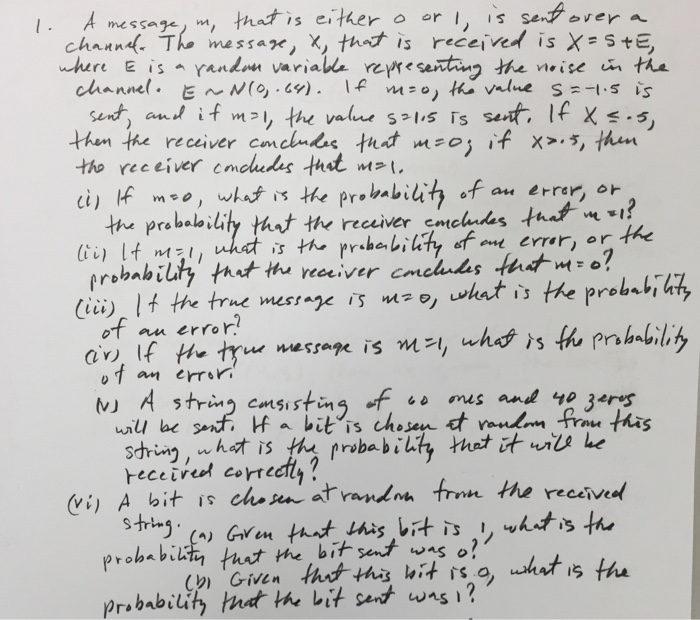 1. A message, m, that is either 0 or 1, is sent over a
channel. The message, X, that is received is X = S + E,
where E is a random variable representing the noise in the
channel. E ~ N(0, .64). If m=0, the value S = -1.5 is
sent, and if m=1, the value S=1.5 is sent. If X ≤ .5,
then the receiver concludes that m=0; if X>.5, then
the receiver concludes that m=1.
(i) If m=0, what is the probability of an error, or
the probability that the receiver concludes that m=1?
(ii) If m=1, what is the probability of an error, or the
probability that the receiver concludes that m=0?
(iii) If the true message is m=0, what is the probability
of an error?
(iv) If the true message is m=1, what is the probability
of an error?
(v) A string consisting of 60 ones and 40 zeros
will be sent. If a bit is chosen at random from this
string, what is the probability that it will be
received correctly?
(vi) A bit is chosen at random from the received
string. (a) Given that this bit is 1, what is the
probability that the bit sent was 0?
(b) Given that this bit is 0, what is the
probability that the bit sent was 1?